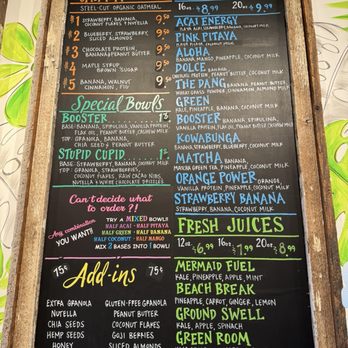 STEEL-CUT ORGANIC OATMEAL
#1 STRAWBERRY, BANANA, COCONUT FLAKES & NUTELLA 9
#2 BLUEBERRY, STRAWBERRY, SLICED ALMONDS 9
#3 CHOCOLATE PROTEIN, BANANA & PEANUT BUTTER 9
#4 MAPLE SYRUP, BROWN SUGAR 9
#5 BANANA, WALNUT
Special Bowls
BOOSTER
BASE: BANANA, SPIRULINA, VANILLA PROTEIN,
FLAX OIL, PEANUT BUTTER
TOP: GRANOLA, BANANA,
CHIA SEED & PEANUT BUTTER
STUPID CUPID
BASE: STRAWBERRY, BANANA, COCONUT MILK
TOP: GRANOLA, STRAWBERRIES,
COCONUT FLAKES, RAW CACAO NIBS
NUTELLA & WHITE CHOCOLATE DRIZZLES
Can't decide what
to order?!
Any combination
YOU WANT!!
TRY A MIXED BOWL!
HALF ACAI - HALF PITAYA
HALF GREEN - HALF BANANA
HALF COCONUT - HALF MANGO
MIX 2 BASES INTO 1 BOWL!
75¢ Add-ins 75¢
EXTRA GRANOLA
NUTELLA
CHIA SEEDS
HEMP SEEDS
HONEY
GLUTEN-FREE GRANOLA
PEANUT BUTTER
COCONUT FLAKES
GOJI BERRIES
SLICED ALMONDS
16oz $8.99 20oz $9.99
ACAI ENERGY
PINK PITAYA
ALOHA
BANANA, MANGO, PINEAPPLE, COCONUT MILK
DOLCE
THE DANG
GREEN
KALE, PINEAPPLE, BANANA, COCONUT MILK
BOOSTER
KOWABUNGA
BANANA, STRAWBERRY, BLUEBERRY, COCONUT MILK
MATCHA
ORANGE POWER
VANILLA PROTEIN, PINEAPPLE, COCONUT MILK
STRAWBERRY BANANA
STRAWBERRY, BANANA, COCONUT MILK
FRESH JUICES
12oz $6.99 16oz $7.99 20oz $8.99
MERMAID FUEL
KALE, PINEAPPLE, APPLE, MINT
BEACH BREAK
PINEAPPLE, CARROT, GINGER, LEMON
GROUND SWELL
KALE, APPLE, SPINACH
GREEN ROOM